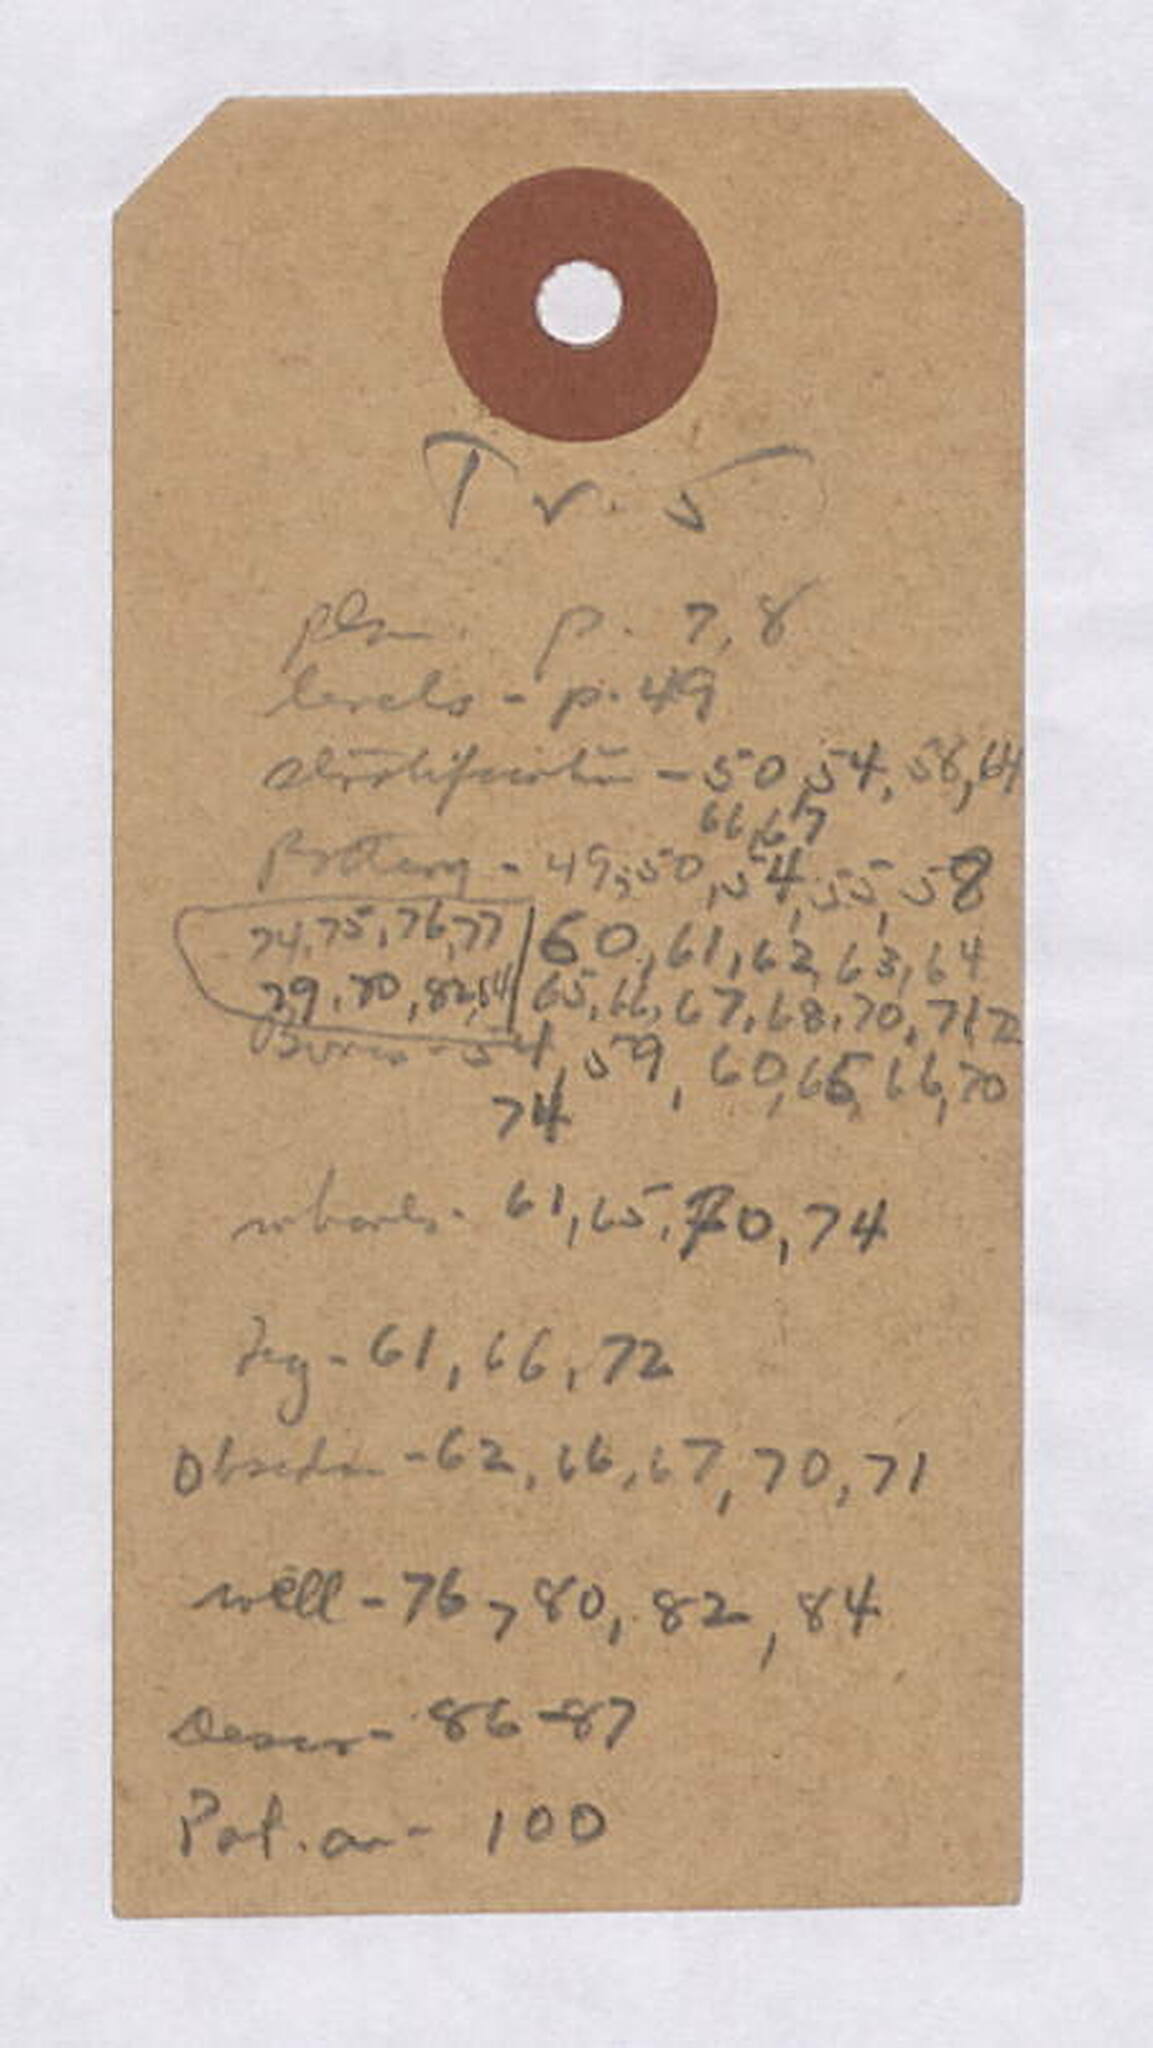 Tr. 5
plan. p. 7, 8
levels - p. 49
stratification - 50, 54, 58, 64
66, 67
Pottery - 49, 50, 54, 55, 58
74, 75, 76, 77 | 60, 61, 62, 63, 64
79, 80, 82, 84 | 65, 66, 67, 68, 70, 71 72
Bones - 54, 59, 60, 65, 66, 70
74
whorls - 61, 65, 70, 74
Leg - 61, 66, 72
Obsidian - 62, 66, 67, 70, 71
well - 76, 80, 82, 84
Descr - 86-87
Pot. an - 100